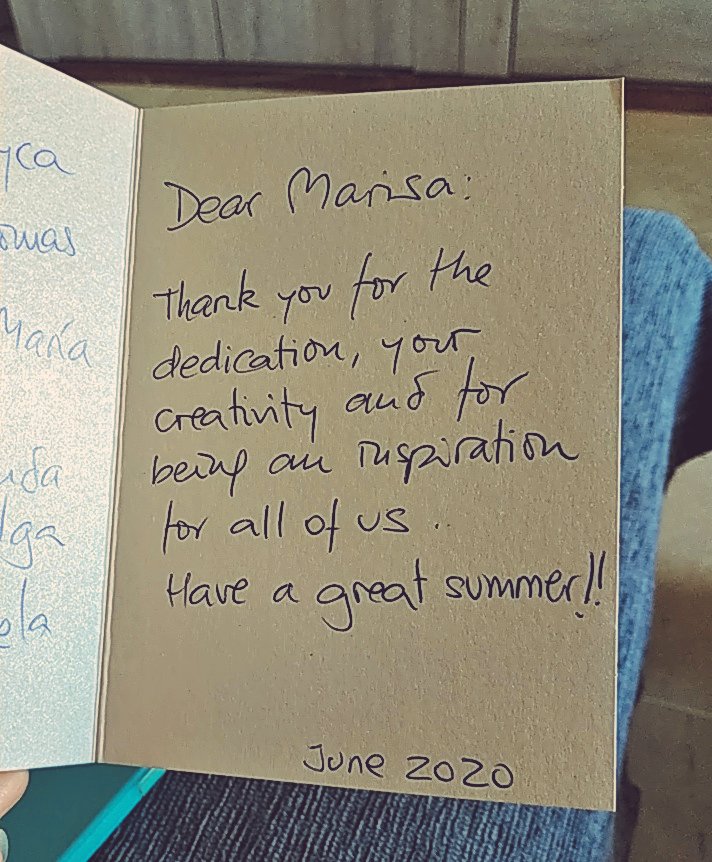 María
Dear Marisa:
Thank you for the
dedication, your
creativity and for
being an inspiration
for all of us ..
Have a great summer!!
June 2020